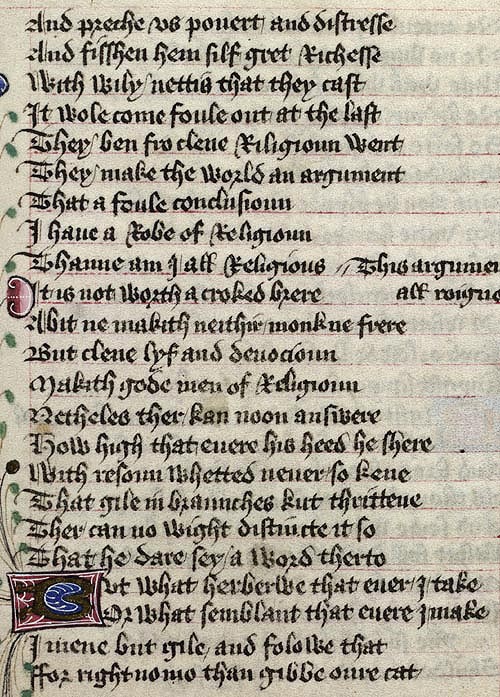 And preche vs pouert and distresse
And fisshen hem silf gret Richesse
With wily nettis that they cast
It wole come foule out at the last
They ben fro clene Religioun went
They make the world an argument
That a foule conclusioun
I haue a Robe of Religioun
Thanne am I all Religious // This argumen
It is not worth a croked brere all roigno
Abit ne makith neithir monk ne frere
But clene lyf and deuocioun
Makith gode men of Religioun
Netheles ther kan noon answere
How high that euere his heed he shere
With resoun whetted neuer so kene
That gile in braunches kut thrittene
Ther can no wight distincte it so
That he dare sey a word therto
But what herberwe that euer I take
Or what semblant that euere I make
I mene but gile and folowe that
ffor right nomo than gibbe oure cat